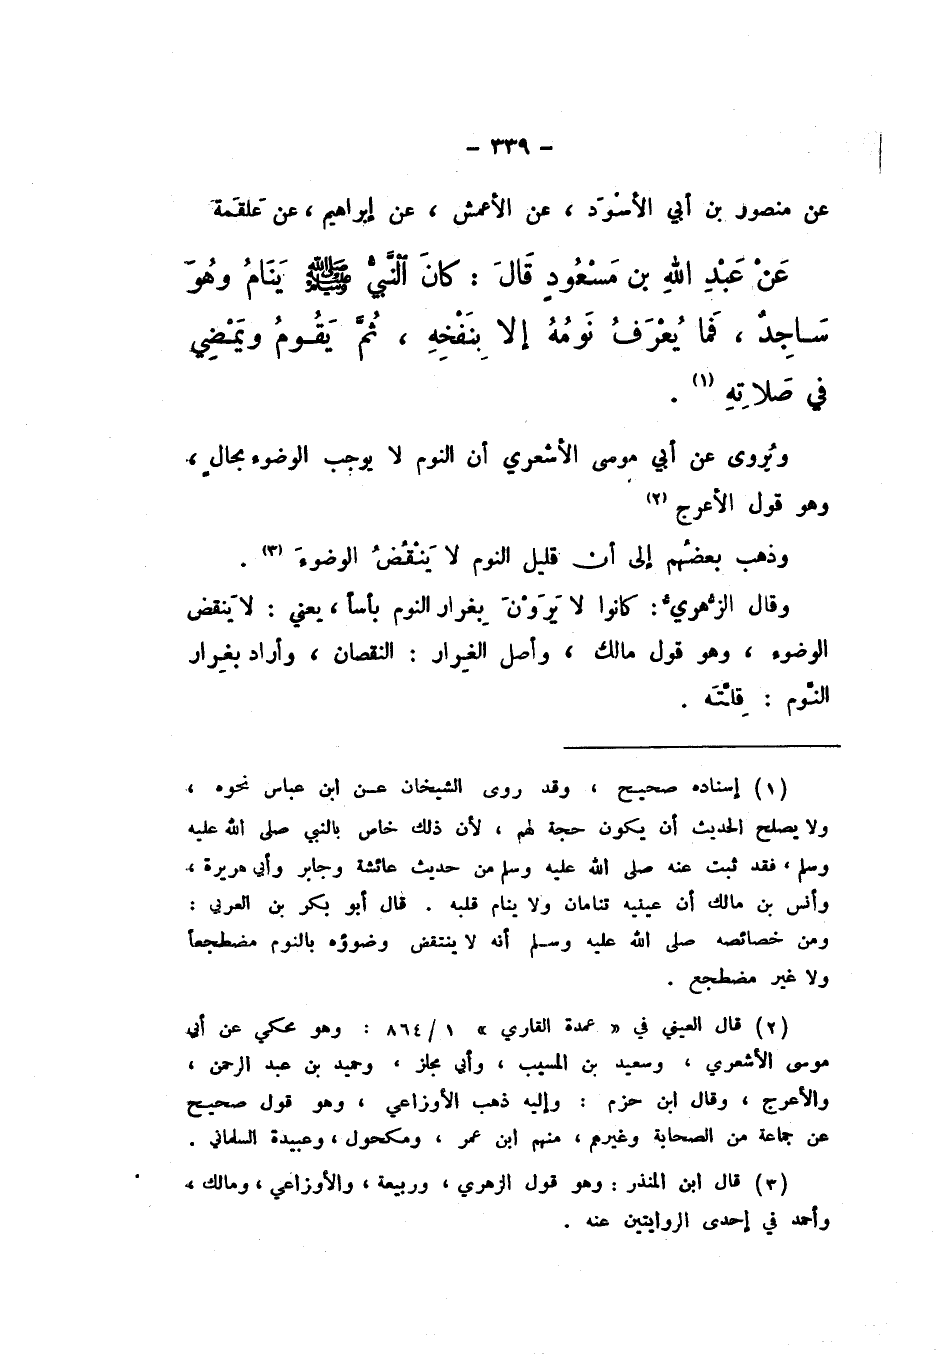 - ٣٣٩ -
عن منصور بن أبي الأسْوَد ، عن الأعمش ، عن إبراهيم ، عن عَلقَمةَ
عَنْ عَبْدِ اللهِ بن مَسْعُودٍ قَالَ : كانَ النَّبيُّ ﷺ يَنَامُ وهُوَ
سَاجِدٌ ، فَما يُعْرَفُ نَومُهُ إلا بِنَفْخِهِ ، ثُمَّ يَقُومُ ويَمْضِي
في صَلاتِهِ (١) .
ويُروى عن أبي موسى الأشعري أن النوم لا يوجب الوضوء بحالٍ ،
وهو قول الأعرج (٢)
وذهب بعضُهم إلى أن قليل النوم لا يَنْقُضُ الوضوءَ (٣) .
وقال الزُّهريُّ : كانوا لا يَرَوْنَ بِغرار النوم بأساً ، يعني : لا يَنقض
الوضوء ، وهو قول مالك ، وأصل الغِرار : النقصان ، وأراد بغِرار
النَّوم : قِلَّتَه .
(١) إسناده صحيح ، وقد روى الشيخان عن ابن عباس نحوه ،
ولا يصلح الحديث أن يكون حجة لهم ، لأن ذلك خاص بالنبي صلى الله عليه
وسلم ، فقد ثبت عنه صلى الله عليه وسلم من حديث عائشة وجابر وأبي هريرة ،
وأنس بن مالك أن عينيه تنامان ولا ينام قلبه . قال أبو بكر بن العربي :
ومن خصائصه صلى الله عليه وسلم أنه لا ينتقض وضوؤه بالنوم مضطجعاً
ولا غير مضطجع .
(٢) قال العيني في « عمدة القاري » ١ / ٨٦٤ : وهو محكي عن أبي
موسى الأشعري ، وسعيد بن المسيب ، وأبي مجلز ، وحميد بن عبد الرحمن ،
والأعرج ، وقال ابن حزم : وإليه ذهب الأوزاعي ، وهو قول صحيح
عن جماعة من الصحابة وغيرهم ، منهم ابن عمر ، ومكحول ، وعبيدة السلماني .
(٣) قال ابن المنذر : وهو قول الزهري ، وربيعة ، والأوزاعي ، ومالك ،
وأحمد في إحدى الروايتين عنه .